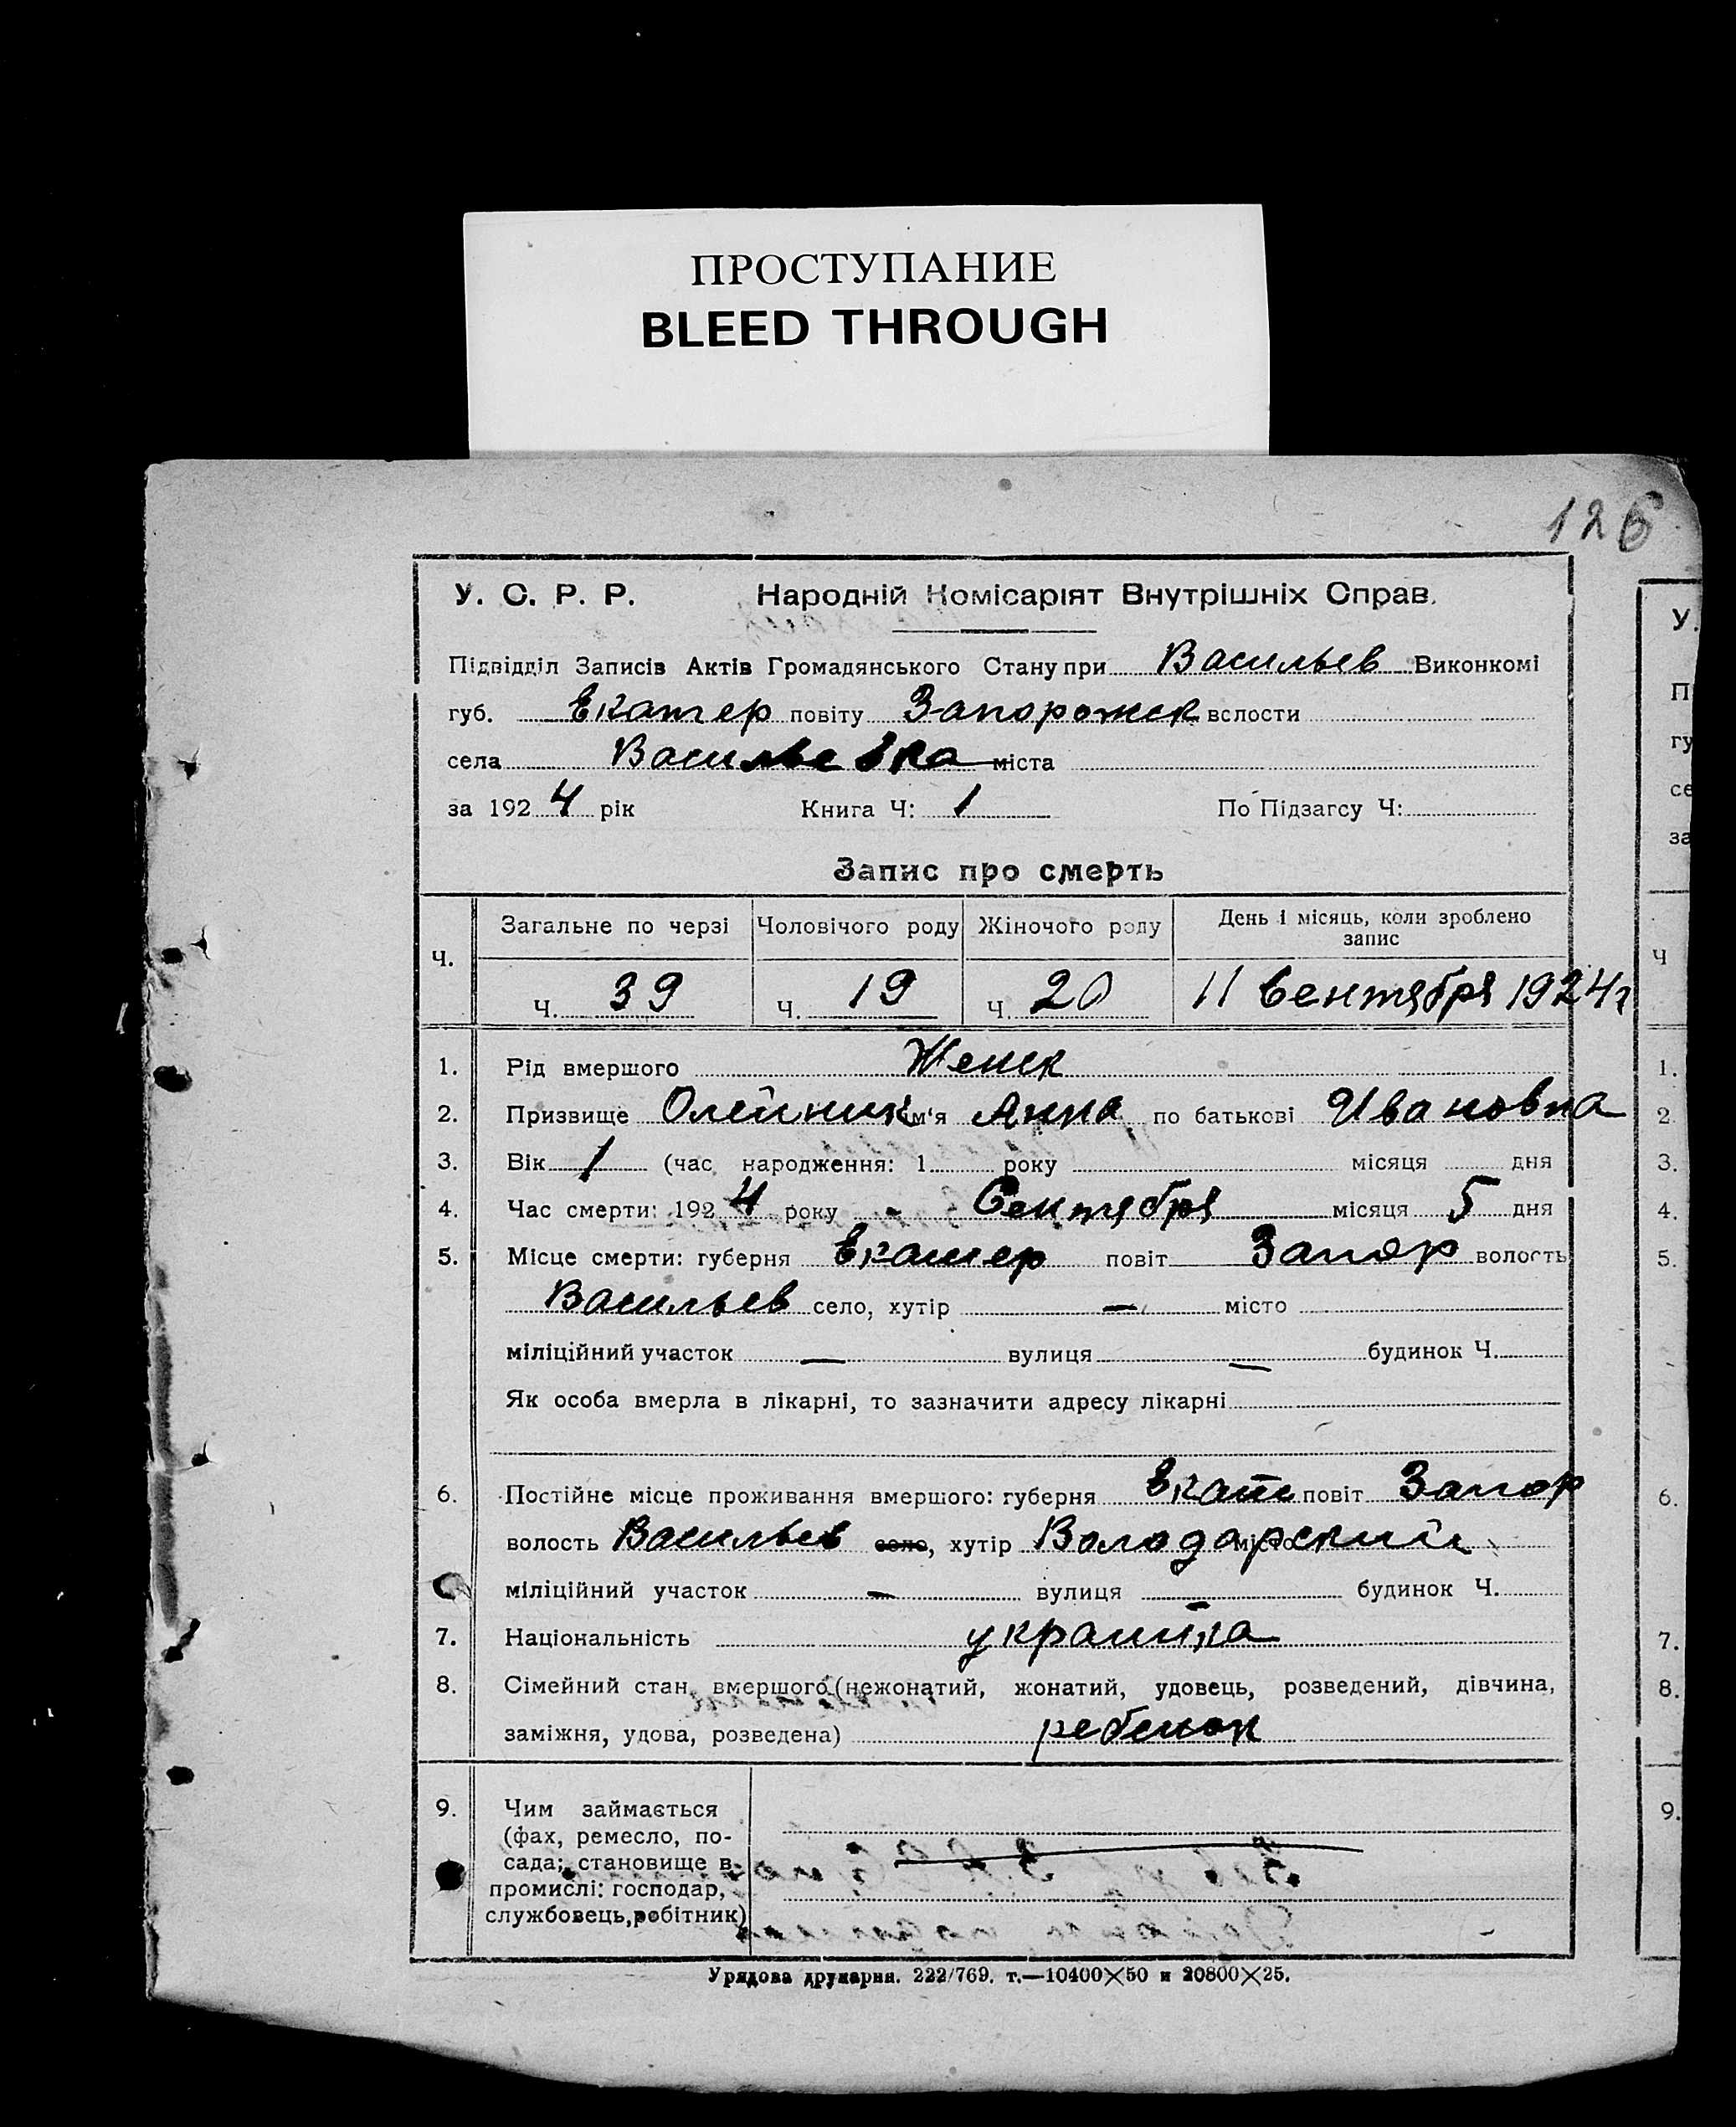 ПРОСТУПАНИЕ
BLEED THROUGH
126
У. С. Р. Р. Народній Комісаріят Внутрішніх Справ.
Підвідділ Записів Актів Громадянського Стану при Васильев Виконкомі
губ. Екатер повіту Запорожск вслости
села Васильевка міста
за 1924 рік Книга Ч: 1 По Підзагсу Ч:
Запис про смерть
Ч. Загальне по черзі Чоловічого роду Жіночого роду День і місяць, коли зроблено запис
Ч. 39 Ч. 19 Ч. 20 11 Сентября 1924 г
1. Рід вмершого Женск
2. Призвище Олейник ім‘я Анна по батькові Ивановна
3. Вік 1 (час народження: 1 року місяця дня
4. Час смерти: 1924 року - Сентября місяця 5 дня
5. Місце смерти: губерня Екатер повіт Запор волость
Васильев село, хутір — місто
міліційний участок — вулиця — будинок Ч.
Як особа вмерла в лікарні, то зазначити адресу лікарні
6. Постійне місце проживання вмершого: губерня Екате повіт Запор
волость Васильев село, хутір Володарский місто
міліційний участок — вулиця — будинок Ч.
7. Національність украинка
8. Сімейний стан вмершого (нежонатий, жонатий, удовець, розведений, дівчина,
заміжня, удова, розведена) ребенок
9. Чим займається
(фах, ремесло, по-
сада; становище в
промислі: господар,
службовець, робітник)
Урядова друкарня. 222/769. т.—10400×50 и 20800×25.
У.
П
гу
се
за
Ч
1.
2
3.
4.
5.
6.
7.
8.
9.